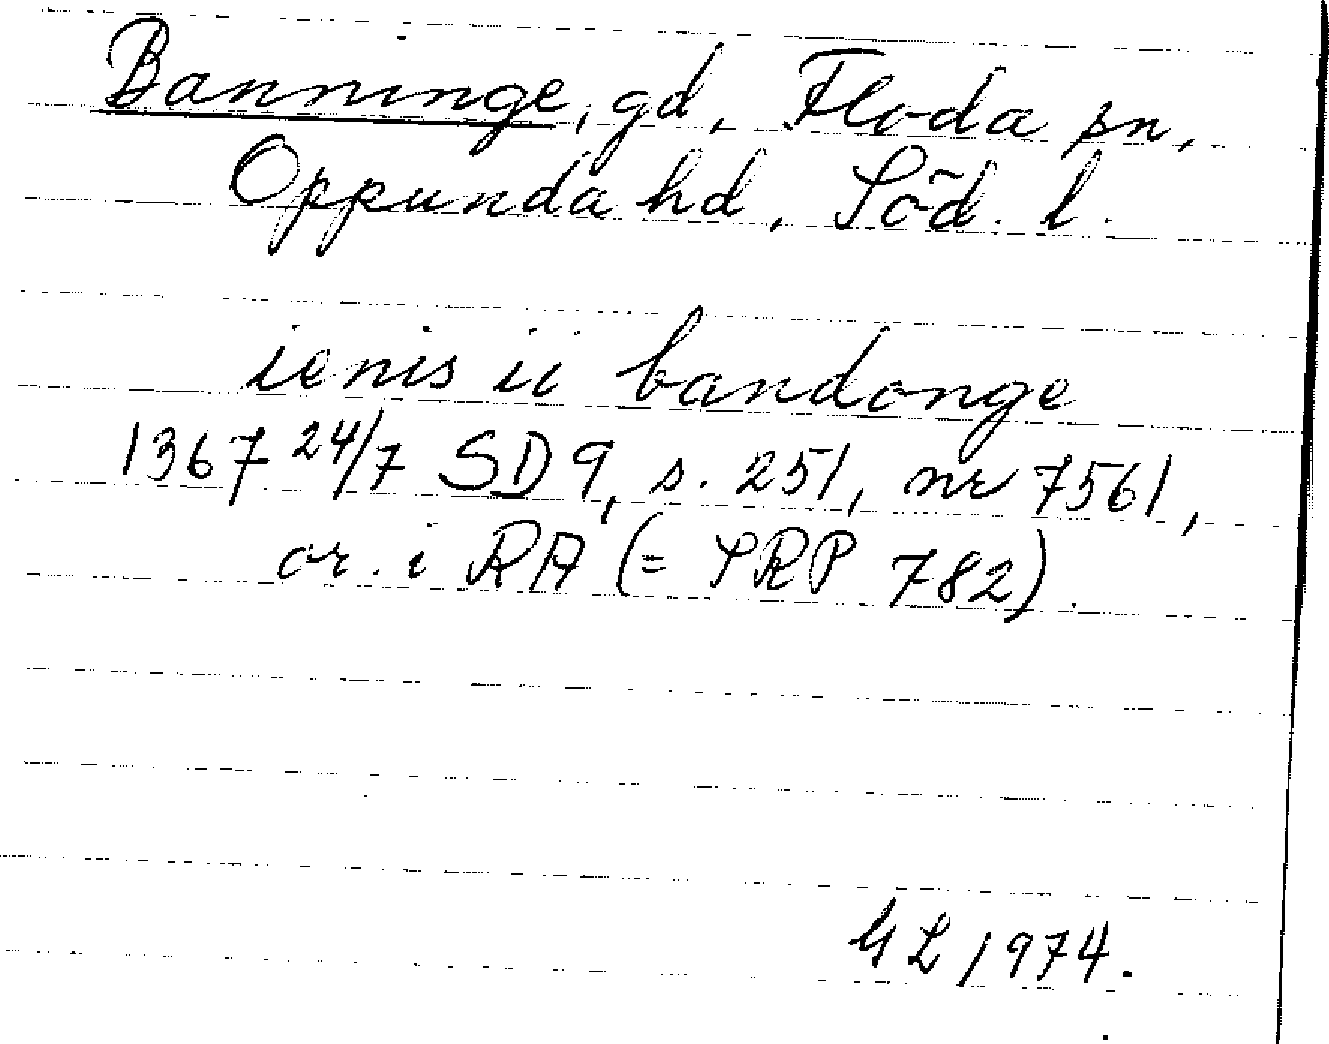 Banninge, gd, Floda sn,
Oppunda hd, Söd. l.
ienis ii bandonge
1367 24/7 SD 9, s. 251, nr 7561,
or. i RA (= SRP 782).
GL 1974.